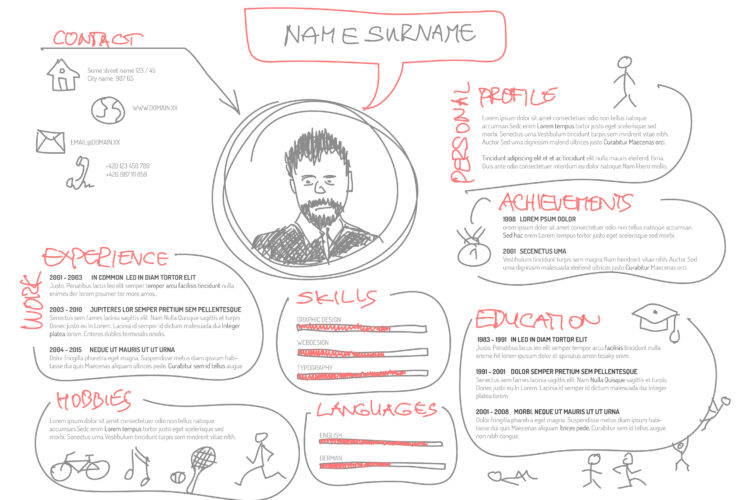 CONTACT
Some street name 123 / 45
City name 987 65
WWW.DOMAIN.XX
EMAIL@DOMAIN.XX
+420 123 456 789
+420 987 111 858
NAME SURNAME
PERSONAL PROFILE
Lorem ipsum dolor sit amet consectetuer odio non tellus natoque
accumsan. Sedc enim Lorem tempus tortor justo eget scelerisque sed
morbi. Senectus urna Vestibulum tincidunt turpis sem mindrerit vitae nibh.
Arcu Sed urna dignissim malesuada elend ultrices dui Curabitur Maecenas orci.
Tincidunt adipiscing elit et et ac tincidunt elit nulla mauris eleifend. Urna.
Duis ante odio consectetuer interdum eu dolor natoque. Nam libero mollis.
ACHIEVEMENTS
1998 LOREM PSUM DOLOR
orem ipsum dolor sit amet consectetuer odio non tellus natoque accumsan.
Sed hac enim Lorem tempus tortor justo eget scelerisque sed morbi.
2001 SECENETUS UMA
Vestibulum tincidunt turpis sem magna Nam hendrerit vitae nibh. Auctor Sed
urna dignissim malesuada eleifend ultricies dui Curabitur Maecenas orci.
WORK EXPERIENCE
2001 - 2003 IN COMMON LED IN DIAM TORTOR ELIT
Justo. Penatibus lacus leo elit semper tempor arcu facilisis tincidunt nulla
enimes der lorem posumer tor more amos.
2003 - 2010 JUPITERES LOR SEMPER PRETIUM SEM PELLENTESQUE
Senectus sem fames ornare massa sed elit. Nam Nulla Quisque sagittis et turpis
Donec justo eu In Lorem. Lacinia id dictum malesuada dui Integer
platea lorem. Enteros dubles terminalis enolis.
2004 - 2015 NEQUE UT MAURIS UT UT URNA
Dolor fringilla pharetra eget magna. Suspendisse metus diam ipsum habi-
tasse dui quis Maecenas aliquam ultrices pede. Curabitur sem id tellus augue
SKILLS
GRAPHIC DESIGN
WEBDESIGN
TYPOGRAPHY
EDUCATION
1983 - 1991 IN LED IN DIAM TORTOR ELIT
Justo. Penatibus lacus leo elit semper tempor arcu facilisis tincidunt nulla
eneme hil lorem ipsum dolor se spiritus amon tesaky enim.
1991 - 2001 DOLOR SEMPER PRETIUM SEM PELLENTESQUE
Senectus sem fames ornare massa sed elit. Nam Nulla Quisque sagittis et turpis
Donec justo eu In Lorem. Lacinia id dictum malesuada dui Integer
platea lorem
2001 - 2008 MORBI. NEQUE UT MAURIS UT UT URNA
Dolor fringilla pharetra eget magna. Suspendisse metus diam ipsum habi-
tasse dui quis Maecenas aliquam ltrices pede. Curabitur sem id tellus augue
non nibh congue.
HOBBIES
Lorem ipsum dolor sit amet consectetuer odio non tellus natoque
accumsan. Sedc enim Lorem tempus tortor justo eget scelerisque sed
morbi. Senectus urna. Vestibulum tincidunt turpis sem magna
LANGUAGES
ENGLISH
GERMAN